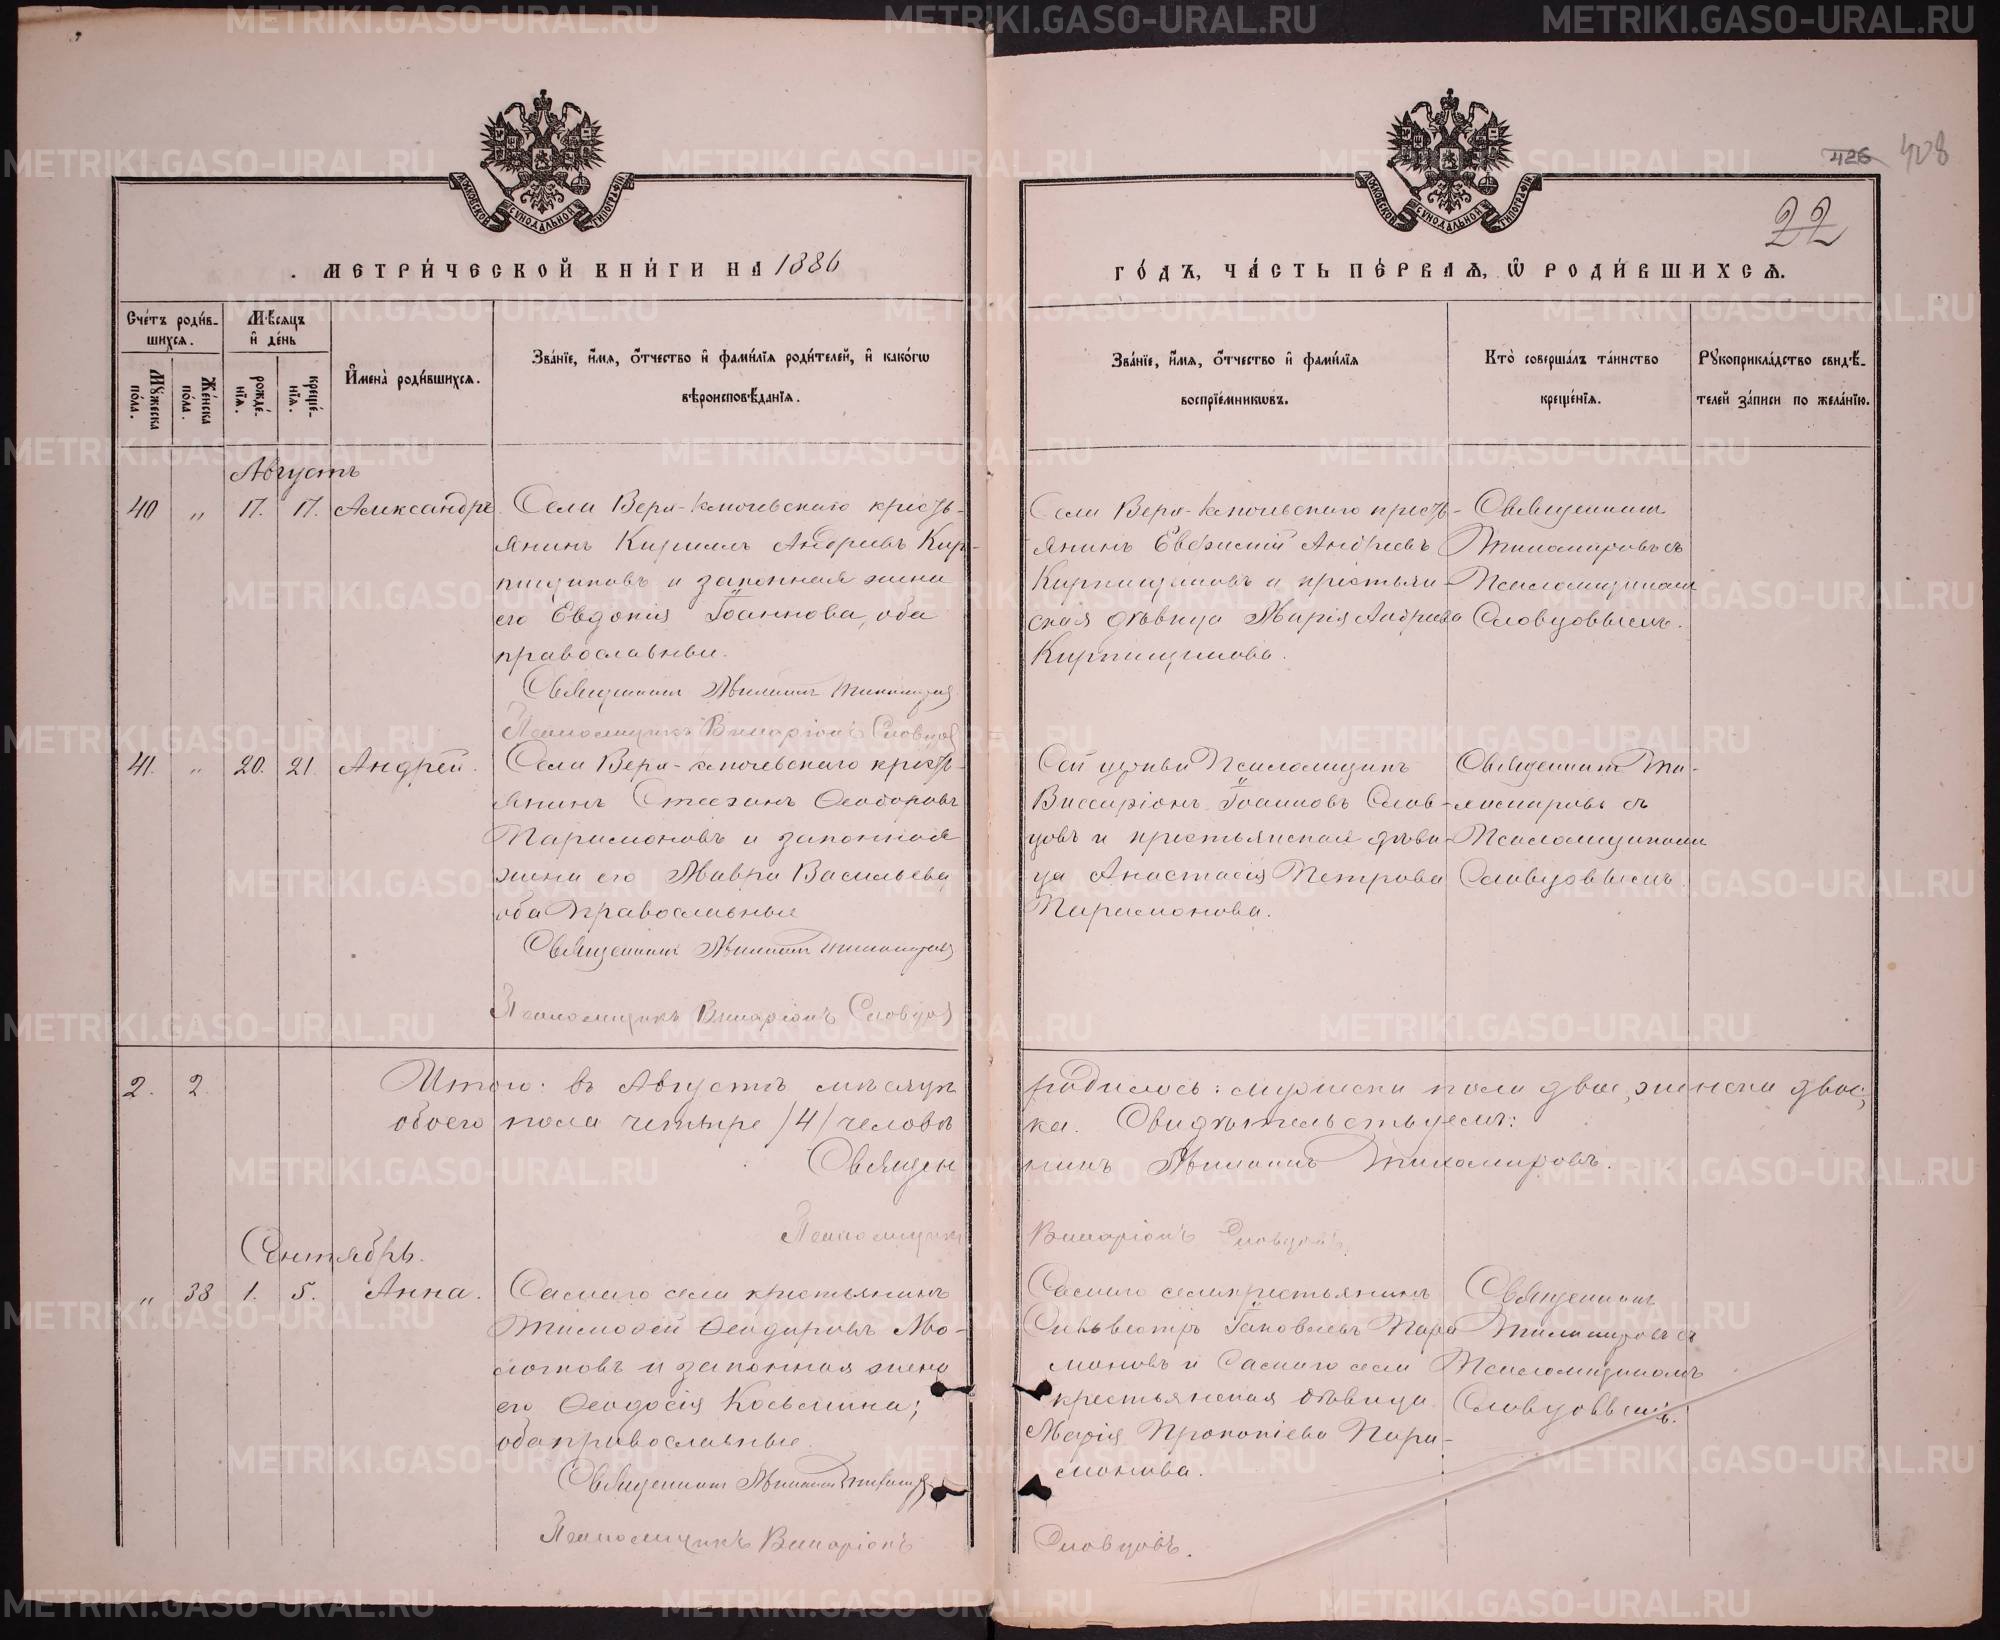 426 408
22
МОСКОВСКОЙ СѴНОДАЛЬНОЙ ТИПОГРАФІИ
МОСКОВСКОЙ СѴНОДАЛЬНОЙ ТИПОГРАФІИ
МЕТРИ́ЧЕСКОЙ КНИ́ГИ НА 1886
ГО́ДЪ, ЧА́СТЬ ПЕ́РВАѦ, Ѡ҆ РОДИ́ВШИХСѦ.
Сче́тъ роди́в-
шихсѧ.
Мꙋ́жеска
по́ла.
Же́нска
по́ла.
Мѣ́сѧцъ
и҆ де́нь
рожде́-
нїѧ.
креще́-
нїѧ.
И҆мена̀ роди́вшихсѧ.
Зва́нїе, и҆́мѧ, ѻ҆́тчество и҆ фами́лїѧ роди́телей, и҆ како́гѡ
вѣроисповѣ́данїѧ.
Зва́нїе, и҆́мѧ, ѻ҆́тчество и҆ фами́лїѧ
воспрїе́мникѡвъ.
Кто̀ соверша́лъ та́инство
креще́нїѧ.
Рꙋкоприкла́дство свидѣ́-
телей за́писи по жела́нїю.
Августъ
40 „ 17. 17. Александръ.
Села Верх-ключевскаго кресть-
янинъ Кириллъ Андреевъ Кир-
пищиковъ и законная жена
его Евдокія Іоаннова, оба
православные.
Священникъ Тихомировъ
Псаломщикъ Виссаріонъ Словцовъ
Села Верх-ключевскаго кресть-
янинъ Евфимій Андреевъ
Кирпищиковъ и крестьян-
ская дѣвица Марія Андреева
Кирпищикова.
Священникъ
Тихомировъ съ
Псаломщикомъ
Словцовымъ.
41. „ 20. 21. Андрей.
Села Верх-ключевскаго кресть-
янинъ Стефанъ Ѳеодоровъ
Парамоновъ и законная
жена его Мавра Васильева,
оба православные
Священникъ Тихомировъ
Псаломщикъ Виссаріонъ Словцовъ
Сей церкви Псаломщикъ
Виссаріонъ Іоанновъ Слов-
цовъ и крестьянская дѣви-
ца Анастасія Петрова
Парамонова.
Священникъ Ти-
хомировъ съ
Псаломщикомъ
Словцовымъ.
2. 2. Итого: въ Августѣ мѣсяцѣ родилось: мужеска пола двое, женска двое,
обоего пола четыре /4/ человѣка. Свидѣтельствуемъ:
Священникъ Тихомировъ.
Псаломщикъ Виссаріонъ Словцовъ.
Сентябрь.
„ 38 1. 5. Анна.
Самаго села крестьянинъ
Тимоѳей Ѳеодоровъ Мо-
лотковъ и законная жена
его Ѳеодосія Косьмина;
оба православные.
Священникъ
Псаломщикъ Виссаріонъ Словцовъ.
Самаго села крестьянинъ
Сильвестръ Іаковлевъ Пара
моновъ и Самаго села
крестьянская дѣвица
Марія Прокопіева Пара-
монова.
Священникъ
Тихомировъ съ
Псаломщикомъ
Словцовымъ.
METRIKI.GASO-URAL.RU